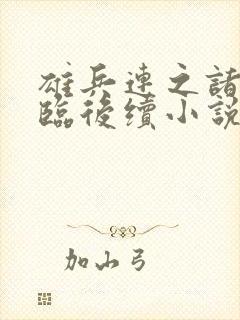 雄兵連之諸
臨後續小說
加山弓